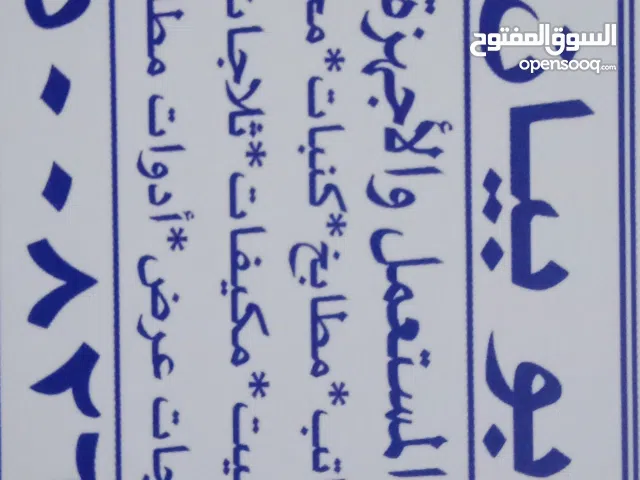 السوق المفتوح
opensooq.com
بو بيان
المستعمل والأجهزة
مطابخ*كنبات*
*مكيفات*ثلاجات
عرض*أدوات
٠٠٨٢